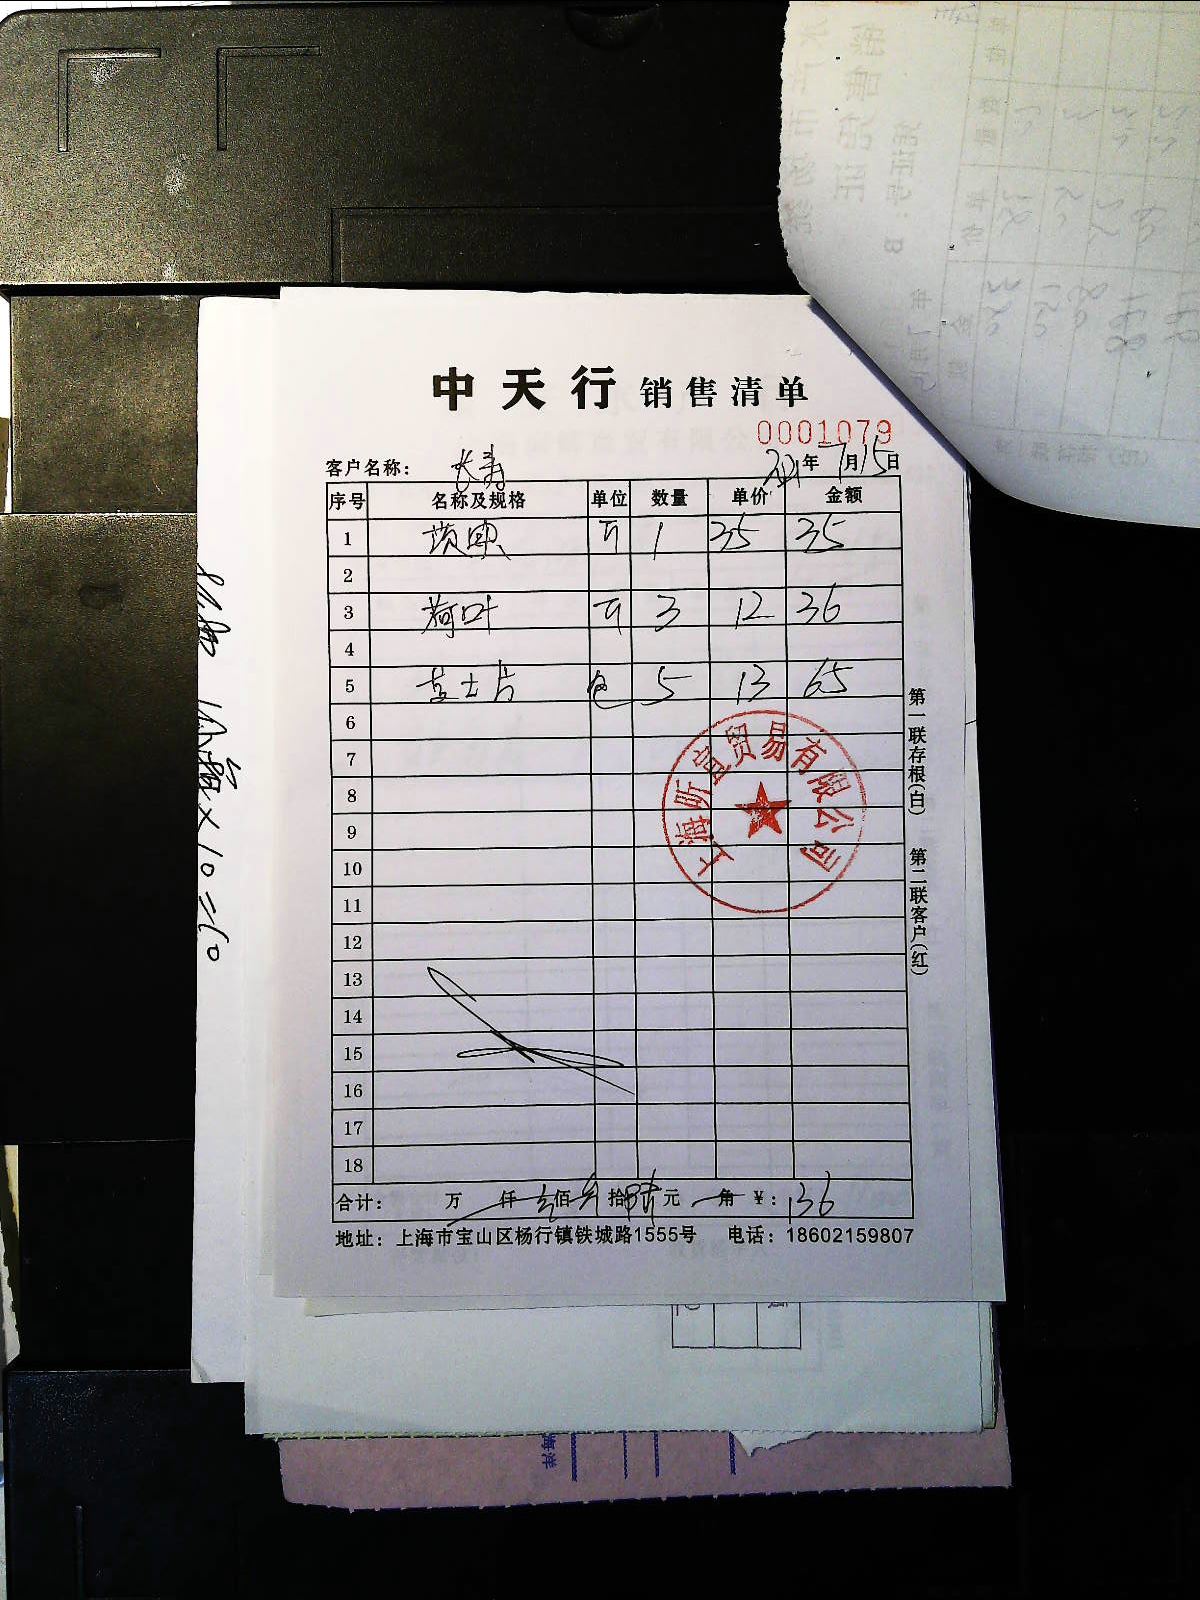 中天行 销售清单
0001079
客户名称： 长寿 2021年7月15日
序号 名称及规格 单位 数量 单价 金额
1 斤 1 35 35
2
3 荷叶 斤 3 12 36
4
5 芝士片 包 5 13 65
6
7
8
9
10
11
12
13
14
15
16
17
18
合计： 万 仟 壹佰 叁拾陆元 角 ￥：136
地址：上海市宝山区杨行镇铁城路1555号 电话：18602159807
第一联存根(白) 第二联客户(红)
上海昕宜贸易有限公司
×10=60
海洋